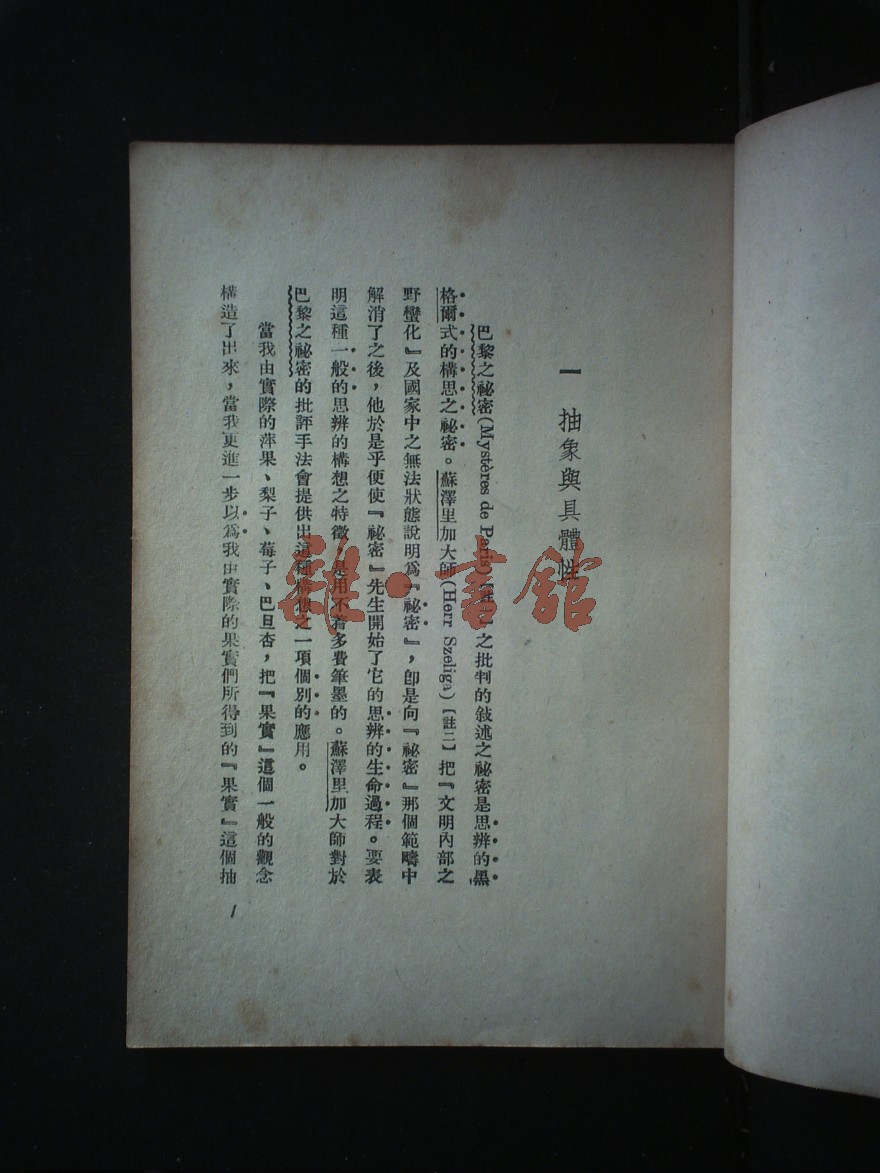 一 抽象與具體性
巴黎之祕密(Mystères de Paris)【註一】之批判的敍述之祕密是思辨的黑
格爾式的構思之祕密。蘇澤里加大師(Herr Szeliga)【註二】把『文明內部之
野蠻化』及國家中之無法狀態說明爲『祕密』，卽是向『祕密』那個範疇中
解消了之後，他於是乎便使『祕密』先生開始了它的思辨的生命過程。要表
明這種一般的思辨的構想之特徵，是用不着多費筆墨的。蘇澤里加大師對於
巴黎之祕密的批評手法會提供出這種構想之一項個別的應用。
當我由實際的苹果、梨子、莓子、巴旦杏，把『果實』這個一般的觀念
構造了出來，當我更進一步以爲我由實際的果實們所得到的『果實』這個抽
1
雜·書館